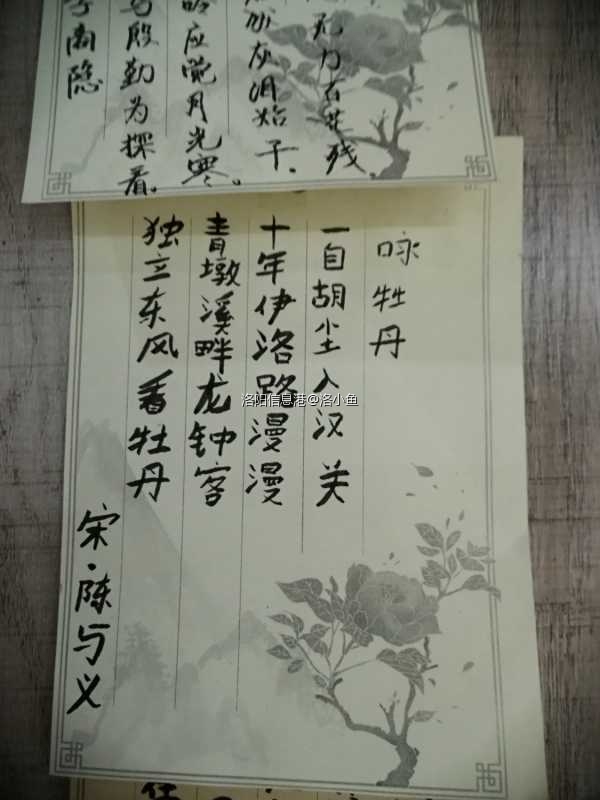 无力百花残.
灰泪始干.
应觉月光寒.
殷勤为探看.
商隐
咏牡丹
一自胡尘入汉关
十年伊洛路漫漫
青墩溪畔龙钟客
独立东风看牡丹
宋·陈与义
洛阳信息港@洛小鱼